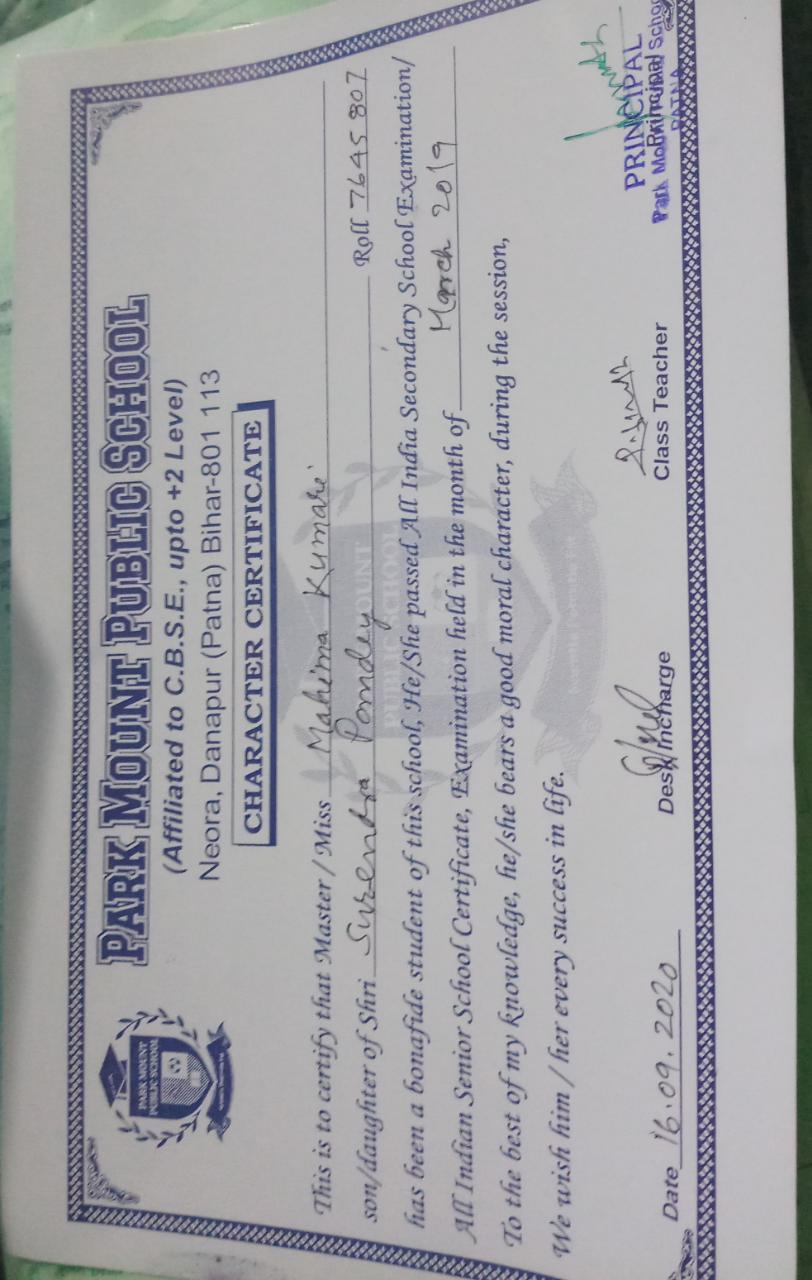 PARK MOUNT
PUBLIC SCHOOL
PARK MOUNT PUBLIC SCHOOL
(Affiliated to C.B.S.E., upto +2 Level)
Neora, Danapur (Patna) Bihar-801 113
CHARACTER CERTIFICATE
This is to certify that Master / Miss Mahima Kumari
son/daughter of Shri Surendra Pandey Roll 7645807
has been a bonafide student of this school, He/She passed All India Secondary School Examination/
All Indian Senior School Certificate, Examination held in the month of March 2019
To the best of my knowledge, he/she bears a good moral character, during the session,
We wish him / her every success in life.
Date 16.09.2020
Desk Incharge
Class Teacher
Principal
PRINCIPAL
Park Mount Public School
PATNA